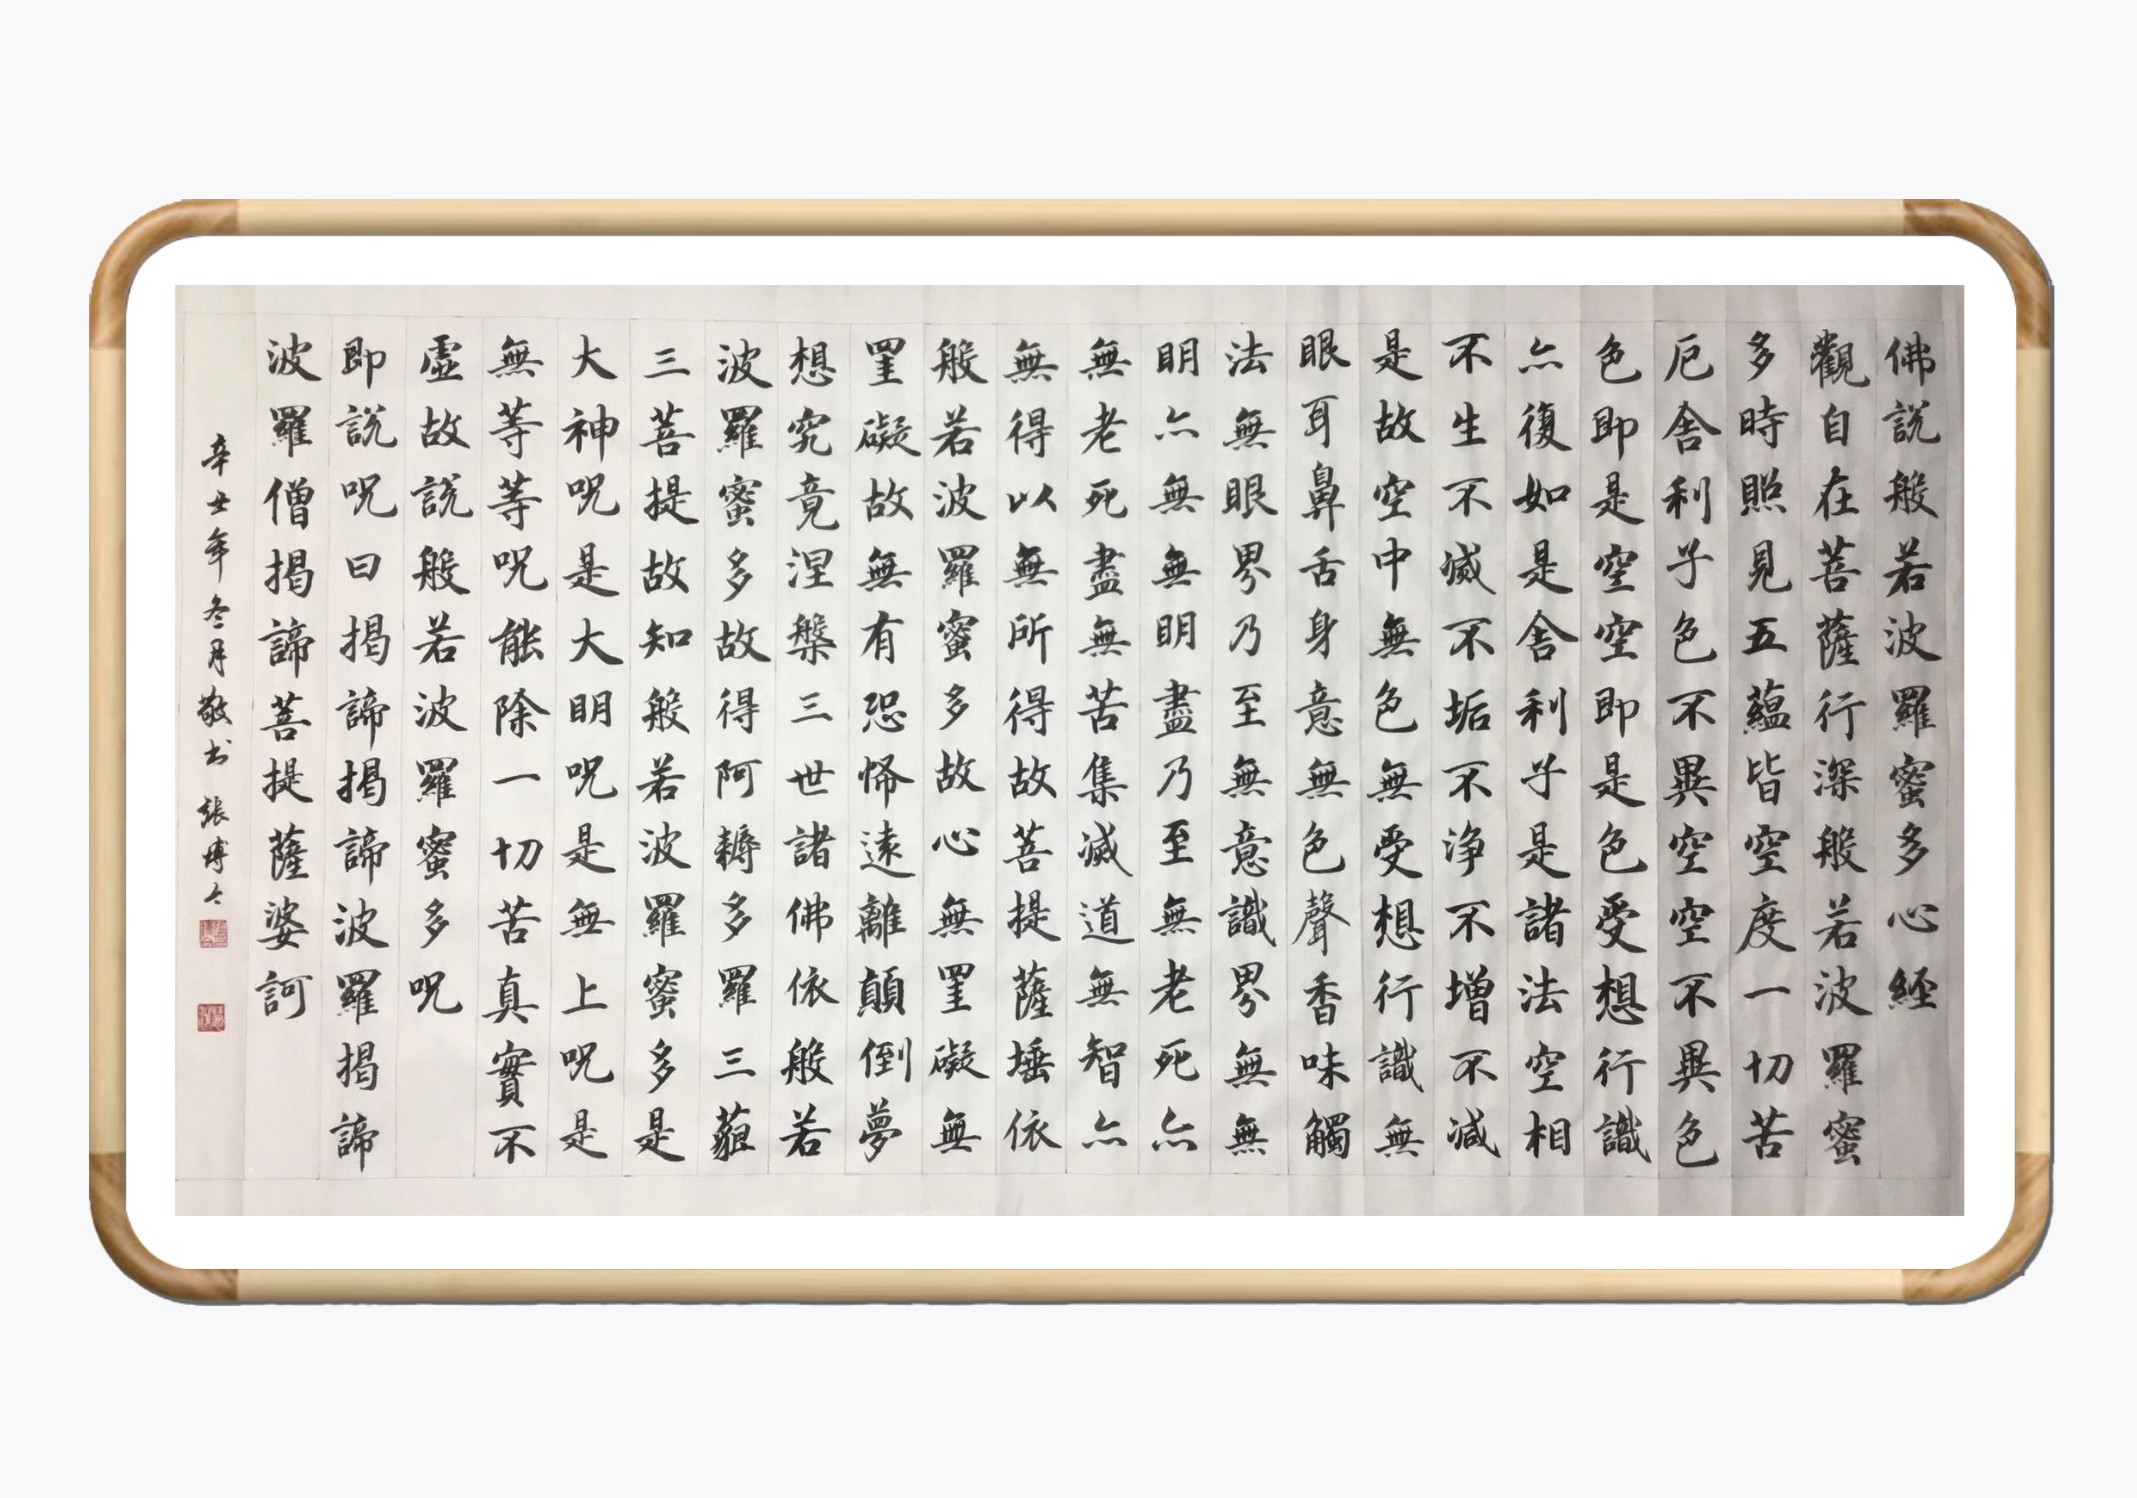 佛說般若波羅蜜多心經
觀自在菩薩行深般若波羅蜜
多時照見五蘊皆空度一切苦
厄舍利子色不異空空不異色
色即是空空即是色受想行識
亦復如是舍利子是諸法空相
不生不滅不垢不净不增不減
是故空中無色無受想行識無
眼耳鼻舌身意無色聲香味觸
法無眼界乃至無意識界無無
明亦無無明盡乃至無老死亦
無老死盡無苦集滅道無智亦
無得以無所得故菩提薩埵依
般若波羅蜜多故心無罣礙無
罣礙故無有恐怖遠離顛倒夢
想究竟涅槃三世諸佛依般若
波羅蜜多故得阿耨多羅三藐
三菩提故知般若波羅蜜多是
大神呪是大明呪是無上呪是
無等等呪能除一切苦真實不
虛故說般若波羅蜜多呪
即說呪曰揭諦揭諦波羅揭諦
波羅僧揭諦菩提薩婆訶
辛丑年冬月敬书 張博